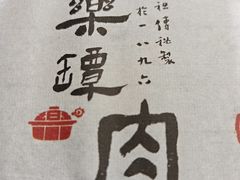 祖傳祕製
於一八九六
樂罈
肉